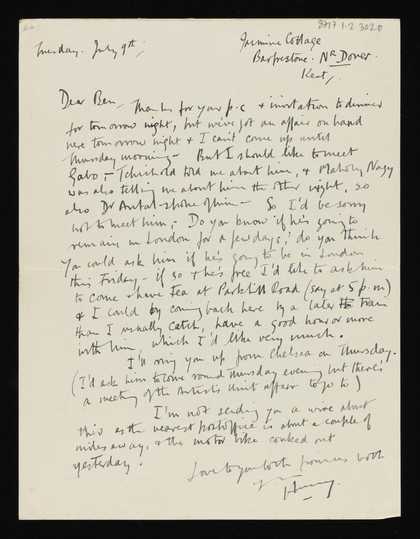 8717.1.2 3020
Tuesday. July 9th;
Jasmine Cottage
Barfrestone. Nr Dover.
Kent,
Dear Ben, Thanks for your p.c + invitation to dinner
for tomorrow night, but we've got an affair on hand
here tomorrow night & I can't come up until
Thursday morning — But I should like to meet
Gabo — Tchichold told me about him, & Moholy Nagy
was also telling me about him the other night, so
also Dr Antal spoke of him — So I'd be sorry
not to meet him; — Do you know if he's going to
remain in London for a few days; do you think
you could ask him if he's going to be in London
this Friday — if so & he's free I'd like to ask him
to come & have tea at Parkhill Road (say at 5 p.m)
& I could by coming back here by a later train
than I usually catch, have a good hour or more
with him, which I'd like very much.
I'll ring you up from Chelsea on Thursday.
(I'd ask him to come round Thursday evening but there's
a meeting of the Artists Unit affair to go to)
I'm not sending you a wire about
this as the nearest postoffice is about a couple of
miles away, & the motor bike conked out
yesterday.
Love to you both from us both
Henry